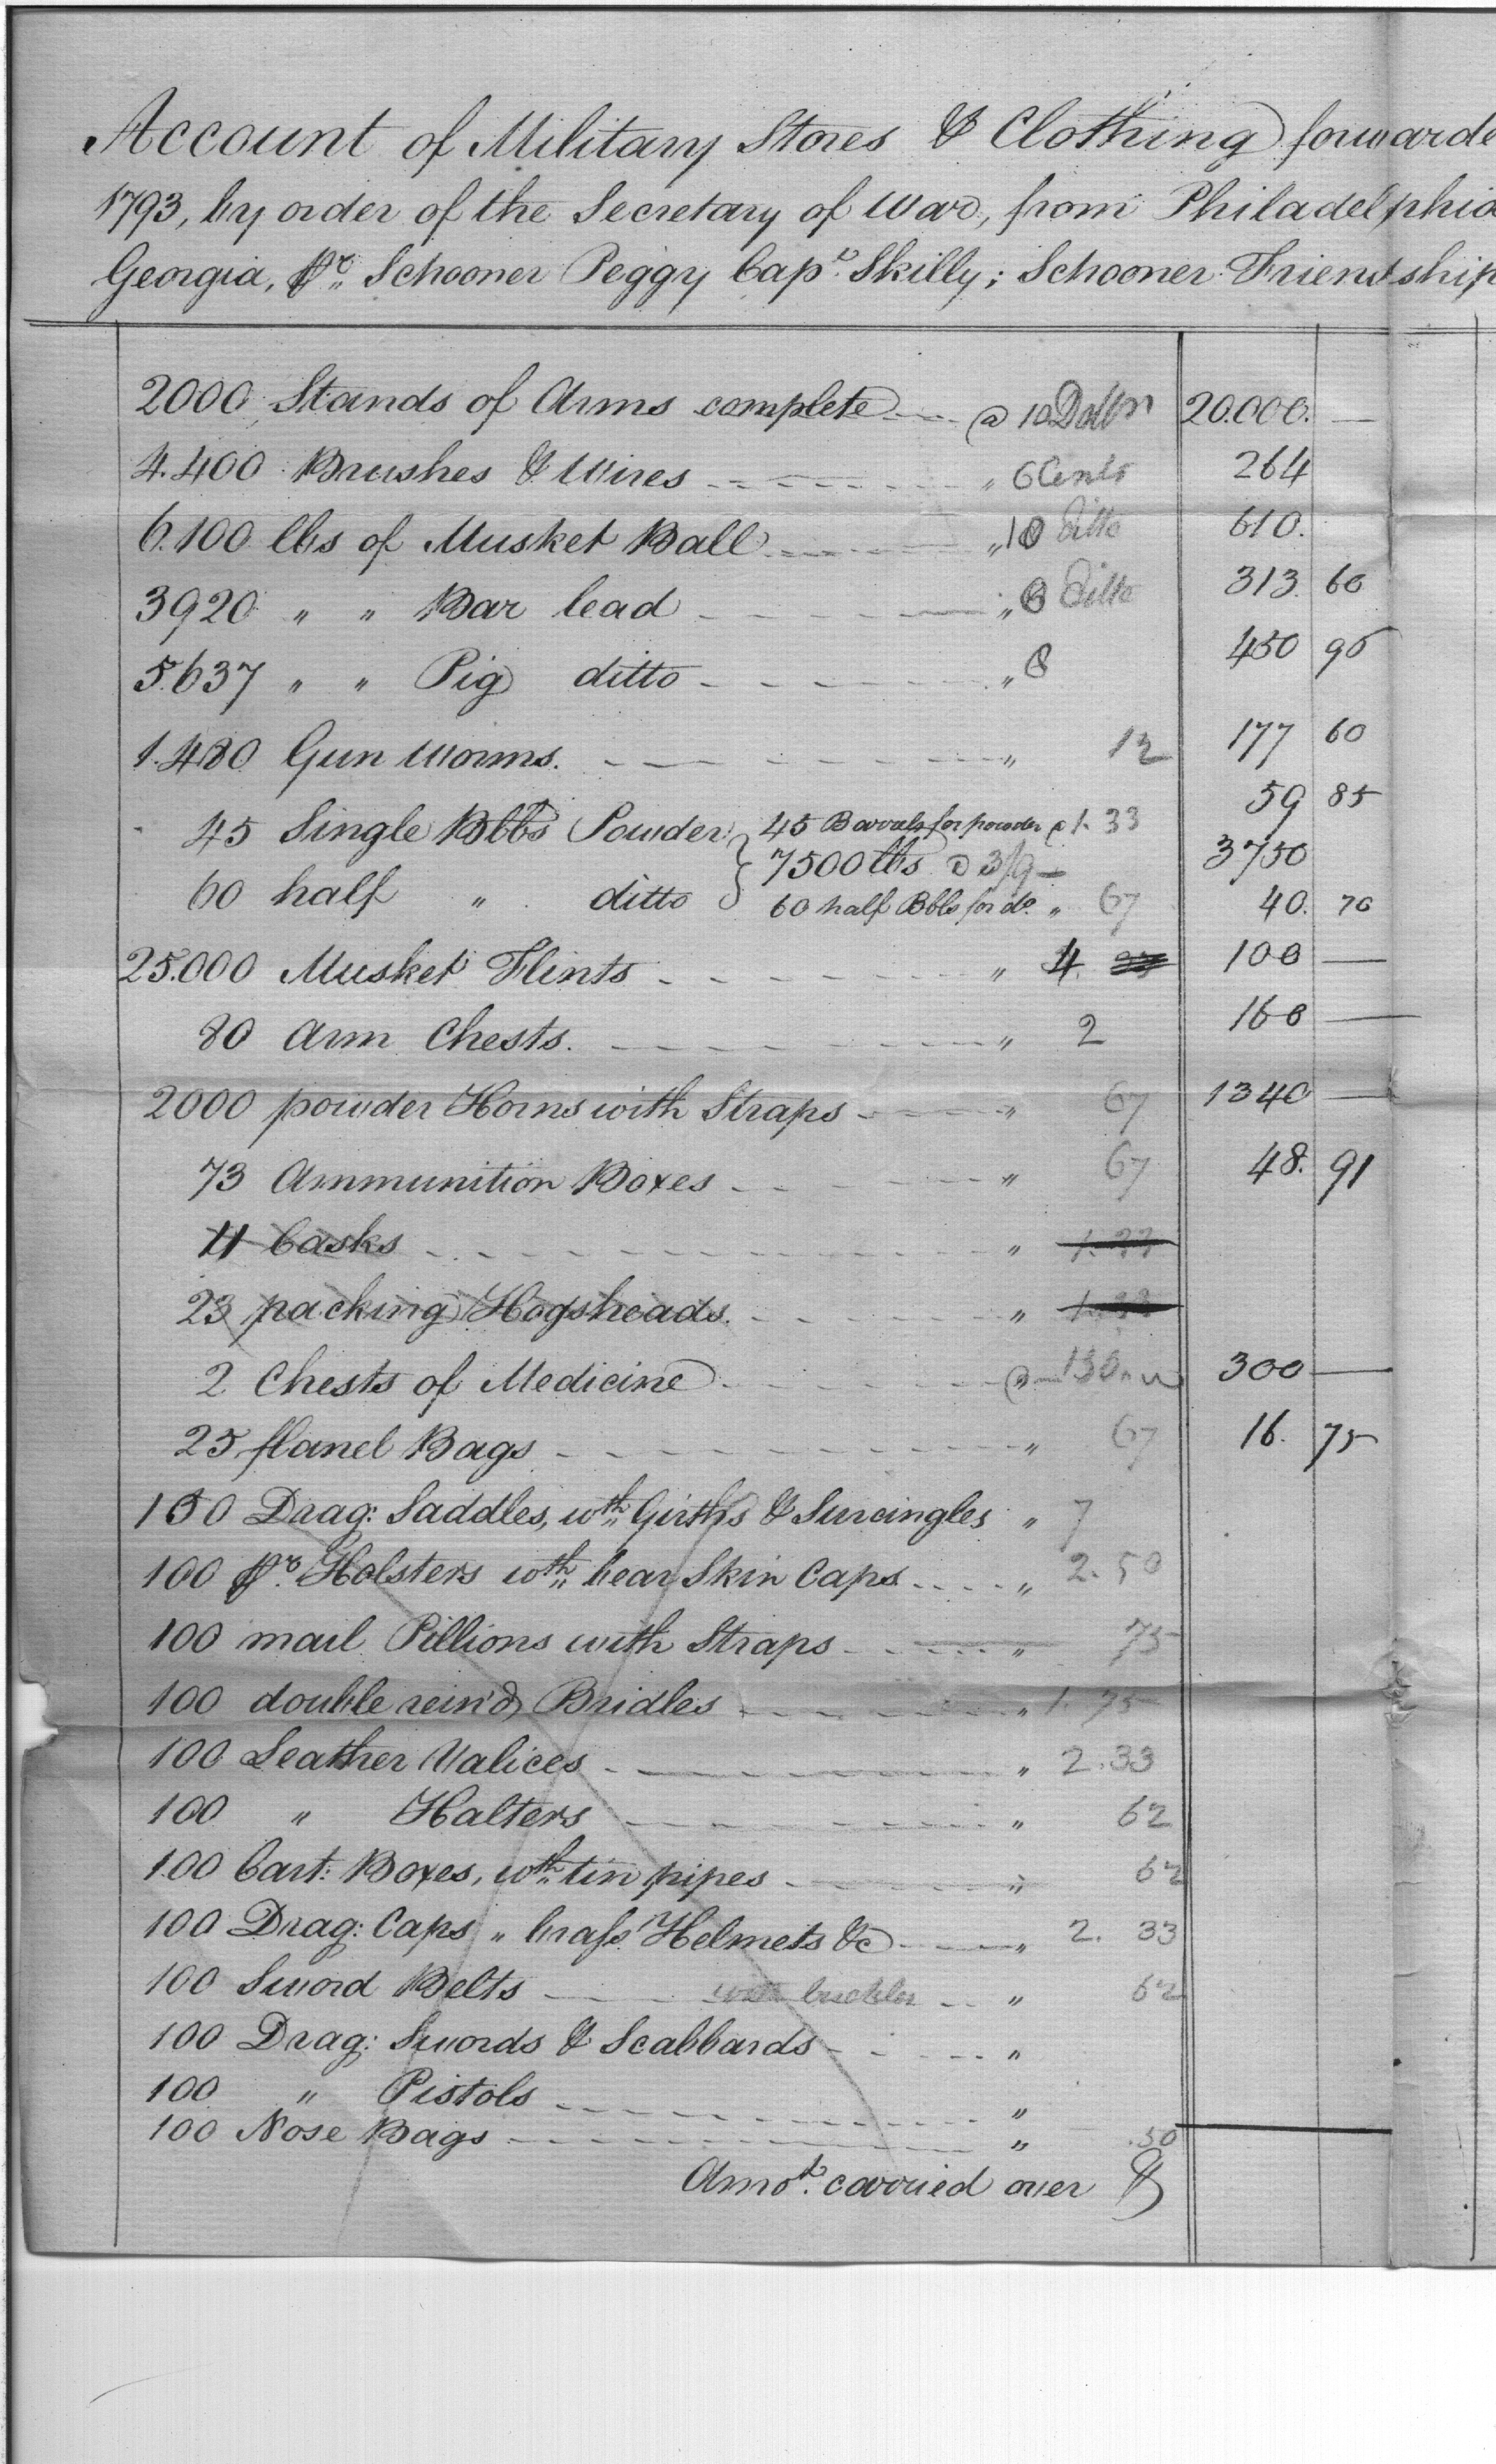 Account of Military Stores & Clothing forwarde
1793, by order of the Secretary of War, from Philadelphia
Georgia, pr. Schooner Peggy Capt. Skilly; Schooner Friendship
2000 Stands of Arms complete @ 10 Dollrs 20.000. —
4.400 Brushes & Wires " 6 Cents 264
6.100 lbs of Musket Ball " 10 ditto 610.
3920 " " Bar lead " 8 ditto 313. 60
5.637 " " Pig ditto " 8 450 96
1.480 Gun Worms. " 12 177 60
45 Single Bbls Powder 45 Barrals for powder @ 1.33 59 85
7500 lbs @ 3/9 — 3750
60 half " ditto 60 half Bbls for do. " 67 40. 70
25.000 Musket Flints " 4. 100 —
80 Arm Chests. " 2 160 —
2000 powder Horns with Straps " 67 1340 —
73 Ammunition Boxes " 67 48. 91
11 Casks " 1.33
23 packing Hogsheads. " 1.33
2 Chests of Medicine @ 150 300 —
25 flanel Bags " 67 16. 75
100 Drag: Saddles, wth Girths & Surcingles " 7
100 pr. Holsters wth bear Skin Caps " 2.50
100 mail Pillions with Straps " 75
100 double rein'd Bridles " 1.75
100 Leather Valices " 2.33
100 " Halters " 62
100 Cart: Boxes, wth tin pipes " 62
100 Drag: Caps " brass Helmets &c " 2. 33
100 Sword Belts with buckles " 62
100 Drag: Swords & Scabbards "
100 " Pistols "
100 Nose Bags " .50
Amot. carried over $